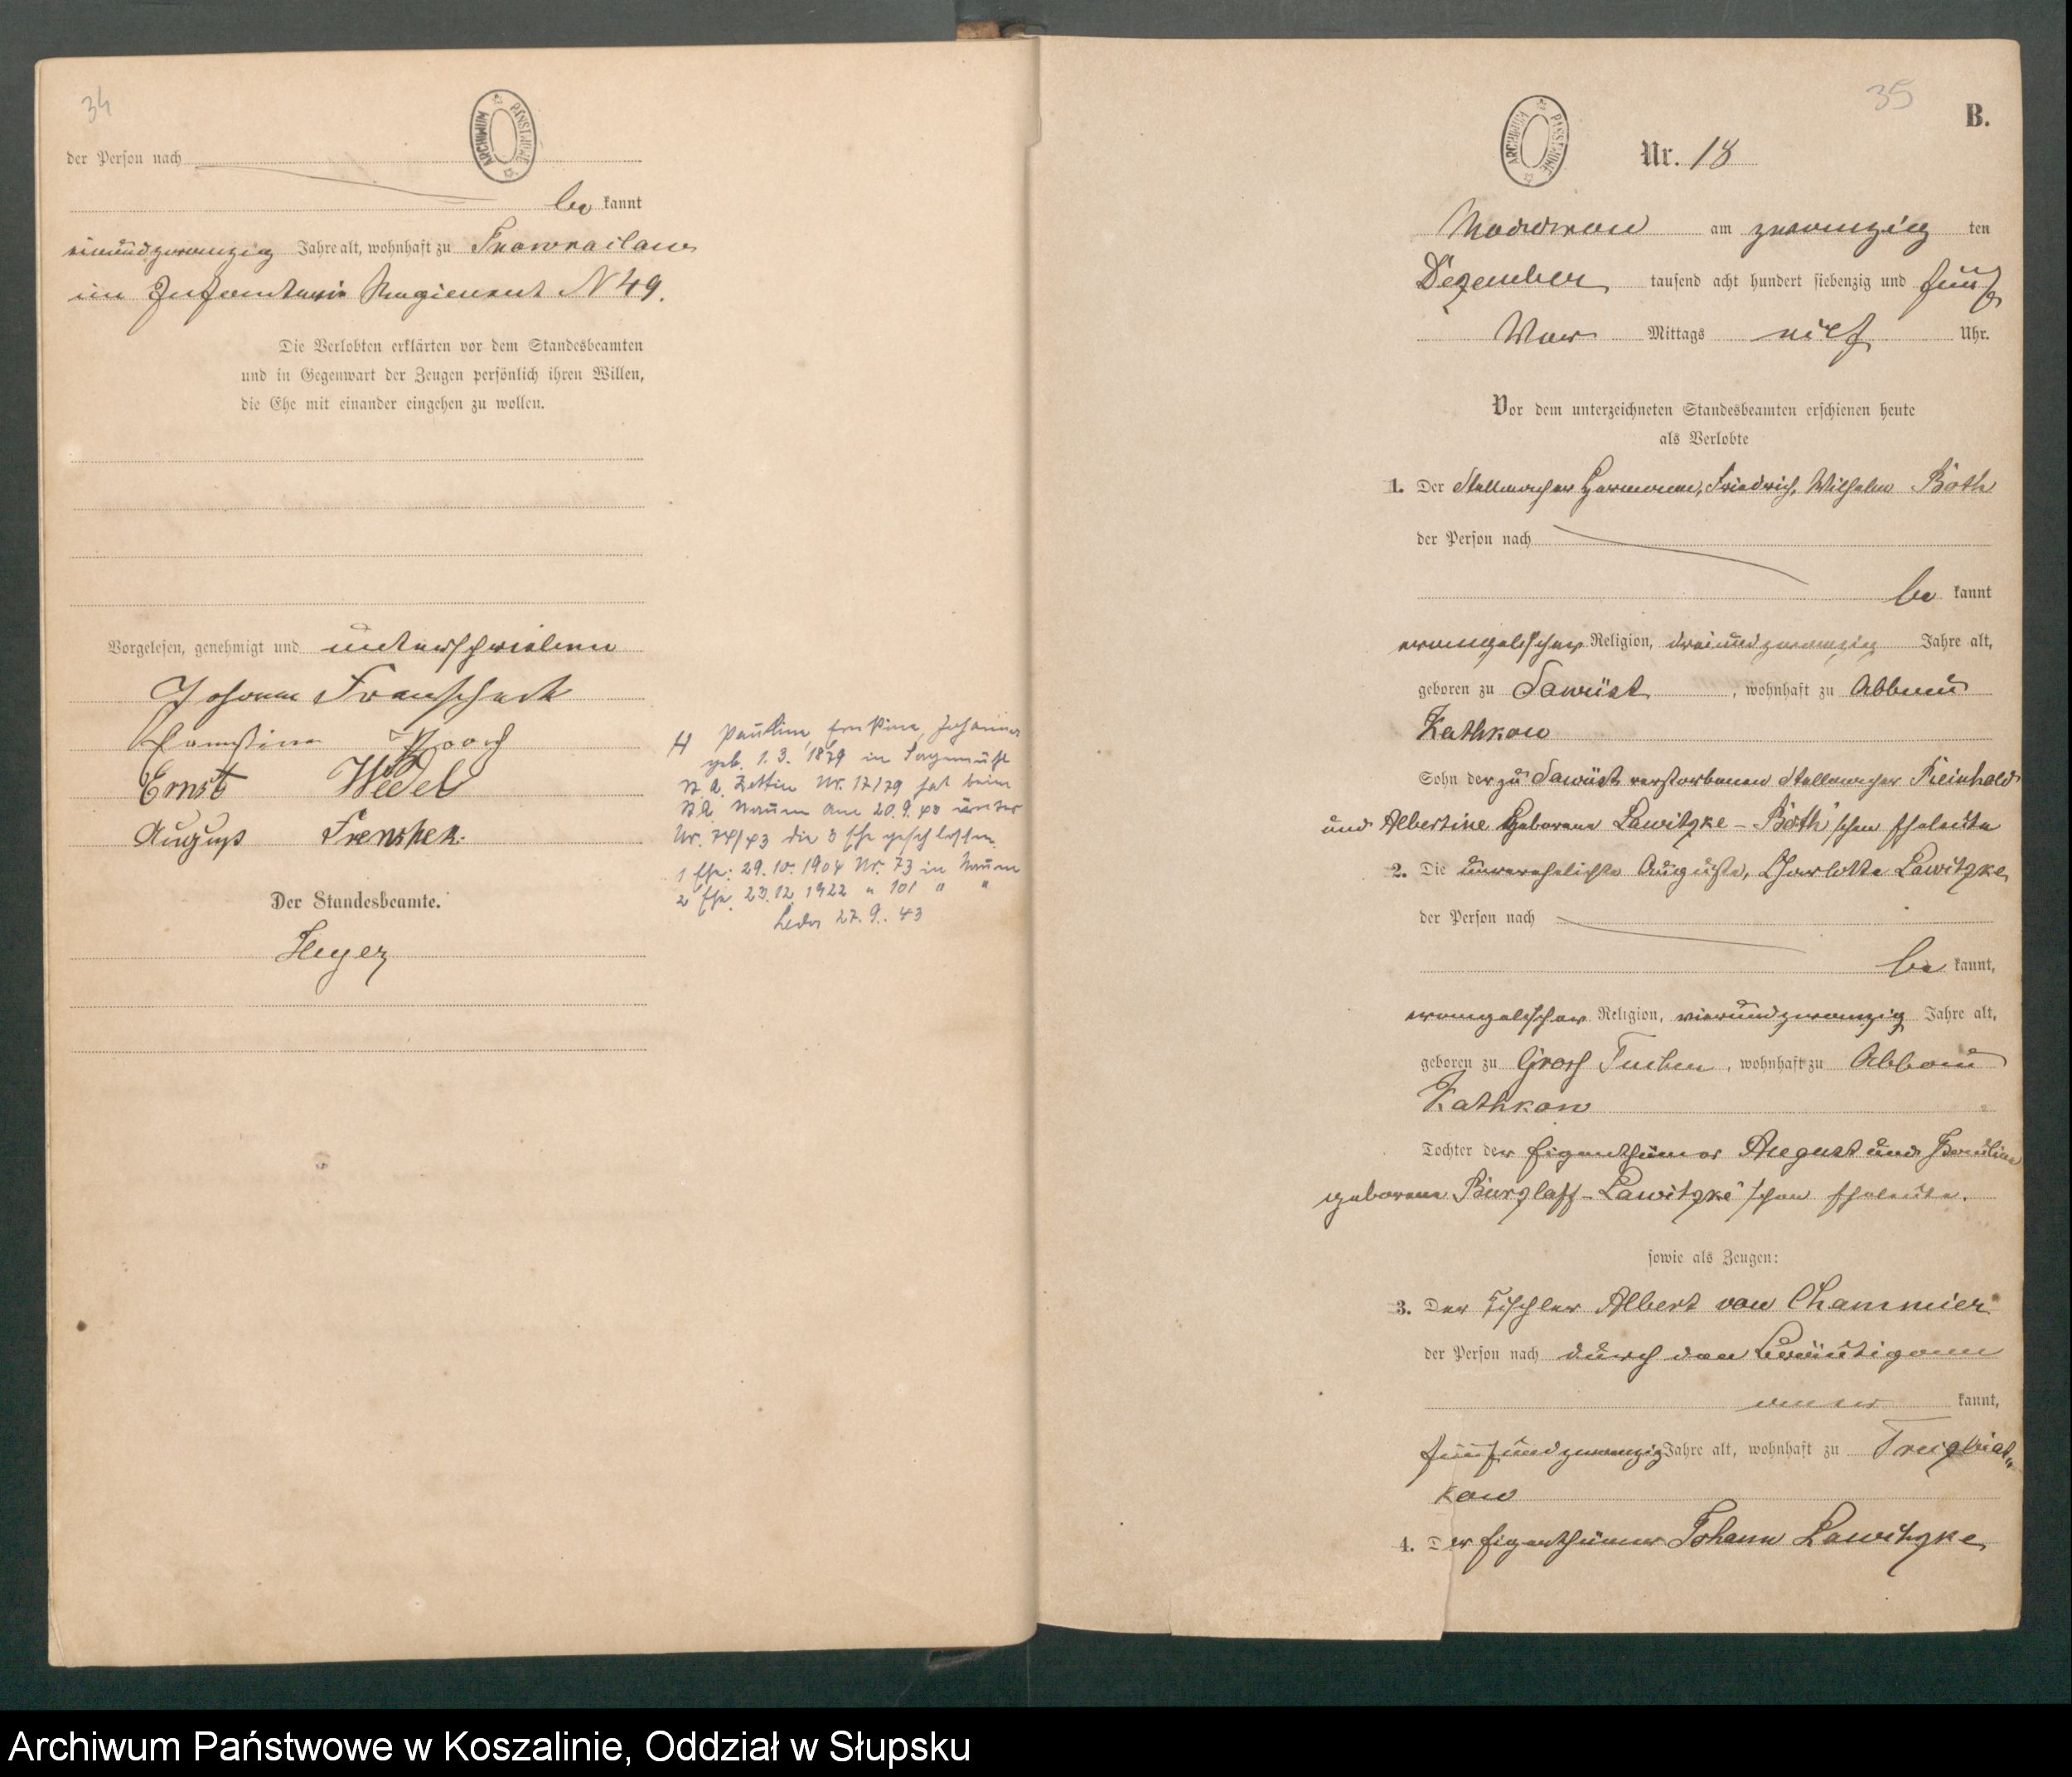 34
ARCHIWUM PAŃSTWOWE
der Person nach
be kannt
einundzwanzig Jahre alt, wohnhaft zu
im Infanterie Regiment N 49.
Die Verlobten erklärten vor dem Standesbeamten
und in Gegenwart der Zeugen persönlich ihren Willen,
die Ehe mit einander eingehen zu wollen.
Vorgelesen, genehmigt und unterschrieben
Johann
Ernst Wedel
August Frenshek.
Der Standesbeamte.
Heyer
H Pauline, Ernstine, Johanna
geb. 1. 3. 1879 in
St. A. Zettin Nr. 17/79 hat beim
St. A. am 20. 9. 43 unter
Nr. 74/43 die 3 Ehe geschlossen
1 Ehe: 29. 10. 1904 Nr. 73 in
2 Ehe 23. 12. 1922 " 101 " "
27. 9. 43
35
B.
ARCHIWUM PAŃSTWOWE
Nr. 18
am zwanzig ten
Dezember tausend acht hundert siebenzig und fünf
Vor Mittags elf Uhr.
Vor dem unterzeichneten Standesbeamten erschienen heute
als Verlobte
1. Der Stellmacher Hermann, Friedrich, Wilhelm Both
der Person nach
be kannt
evangelischer Religion, dreiundzwanzig Jahre alt,
geboren zu Sawüst, wohnhaft zu Abbau
Kathkow
Sohn der zu Sawüst verstorbenen Stellmacher Reinhold
und Albertine geborene Lawitzke - Both'schen Eheleute
2. Die unverehelichte Auguste, Charlotte Lawitzke
der Person nach
be kannt,
evangelischer Religion, vierundzwanzig Jahre alt,
geboren zu Gross Tuchen, wohnhaft zu Abbau
Kathkow
Tochter der Eigenthümer August und
geborene Burzlaff - Lawitzke'schen Eheleute.
sowie als Zeugen:
3. Der Tischler Albert von Chammier
der Person nach durch den Bräutigam
aner kannt,
fünfundzwanzig Jahre alt, wohnhaft zu
kow
4. Der Eigenthümer Johann Lawitzke
Archiwum Państwowe w Koszalinie, Oddział w Słupsku